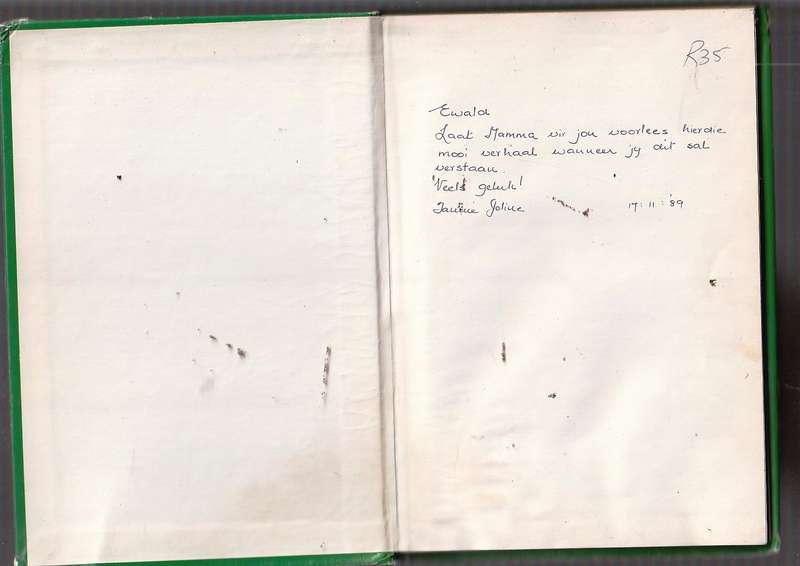 R35
Ewald
Laat Mamma vir jou voorlees hierdie
mooi verhaal wanneer jy dit sal
verstaan.
Veels geluk!
Tannie Joline 17:11:'89